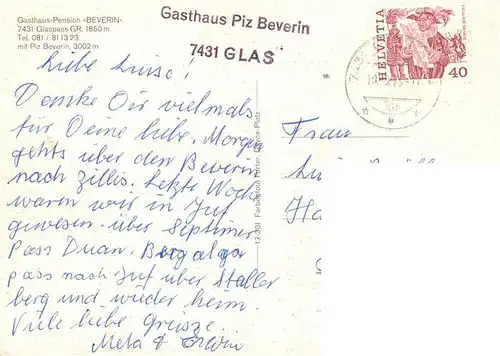 Gasthaus-Pension «BEVERIN»
7431 Glaspass GR. 1850 m
Tel. 081 / 81 13 23
mit Piz Beverin, 3002 m
Gasthaus Piz Beverin
7431 GLAS
HELVETIA
40
Liebe Luise!
Danke Dir vielmals
für Deine liebe. Morgen
gehts über den Beverin
nach Zillis. Letzte Woche
waren wir in Juf
gewesen. über Septimer
Pass Duan. Bergalga
pass nach Juf über Staller
berg und wieder heim.
Viele liebe Grüsze
Meta & Erwin
Frau